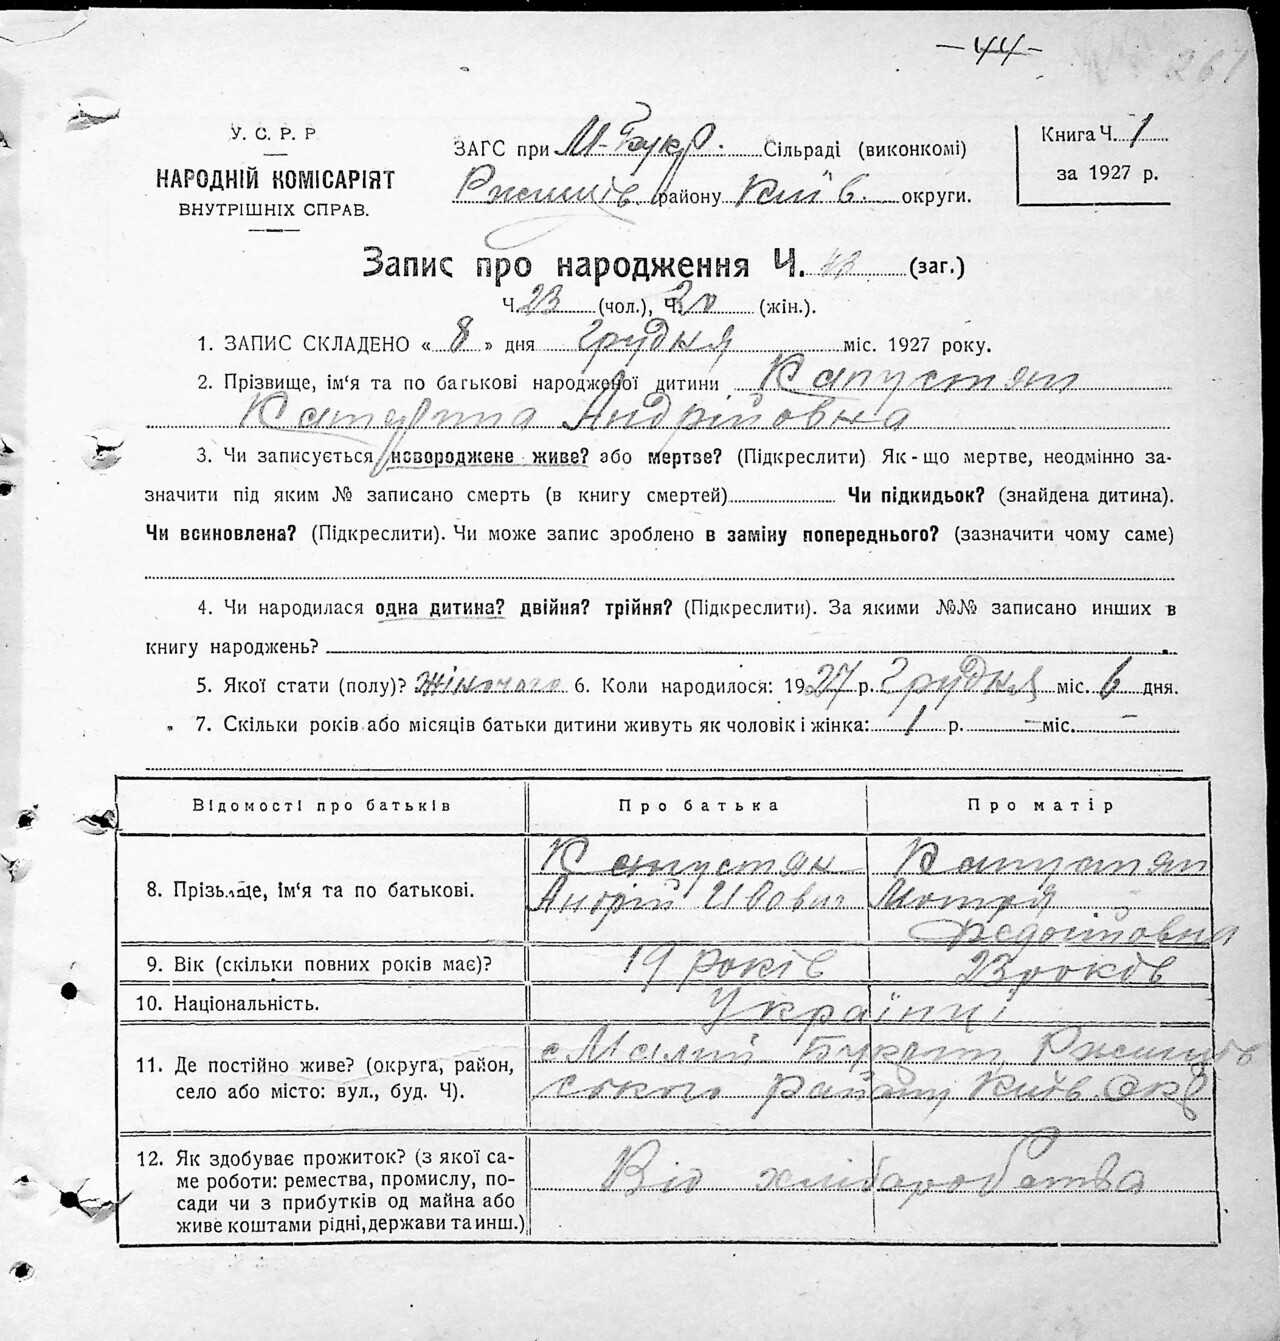 -44-
267
У. С. Р. Р
НАРОДНІЙ КОМІСАРІЯТ
ВНУТРІШНІХ СПРАВ.
ЗАГС при М-Букр. Сільраді (виконкомі)
Ржищів. району Київ. округи.
Книга Ч. 1
за 1927 р.
Запис про народження Ч. 43 (заг.)
Ч. 23 (чол.), Ч. 20 (жін.).
1. ЗАПИС СКЛАДЕНО « 8 » дня грудня міс. 1927 року.
2. Прізвище, ім‘я та по батькові народженої дитини Капустян
Катерина Андрійовна
3. Чи записується новороджене живе? або мертве? (Підкреслити) Як-що мертве, неодмінно за-
значити під яким № записано смерть (в книгу смертей) Чи підкидьок? (знайдена дитина).
Чи всиновлена? (Підкреслити). Чи може запис зроблено в заміну попереднього? (зазначити чому саме)
4. Чи народилася одна дитина? двійня? трійня? (Підкреслити). За якими №№ записано инших в
книгу народжень?
5. Якої стати (полу)? жіночого 6. Коли народилося: 1927 р. Грудня міс. 6 дня.
7. Скільки років або місяців батьки дитини живуть як чоловік і жінка: 1 р. – міс. –
Відомості про батьків Про батька Про матір
8. Прізвище, ім‘я та по батькові.
Капустян
Андрій Ивович
Капустян
Мотря
Федотовна
9. Вік (скільки повних років має)? 19 років 23 років
10. Національність. Українці
11. Де постійно живе? (округа, район,
село або місто: вул., буд. Ч).
с Малий Букрин Ржищів
ського району Київ. Окр
12. Як здобуває прожиток? (з якої са-
ме роботи: ремества, промислу, по-
сади чи з прибутків од майна або
живе коштами рідні, держави та инш.)
Від хліборобства